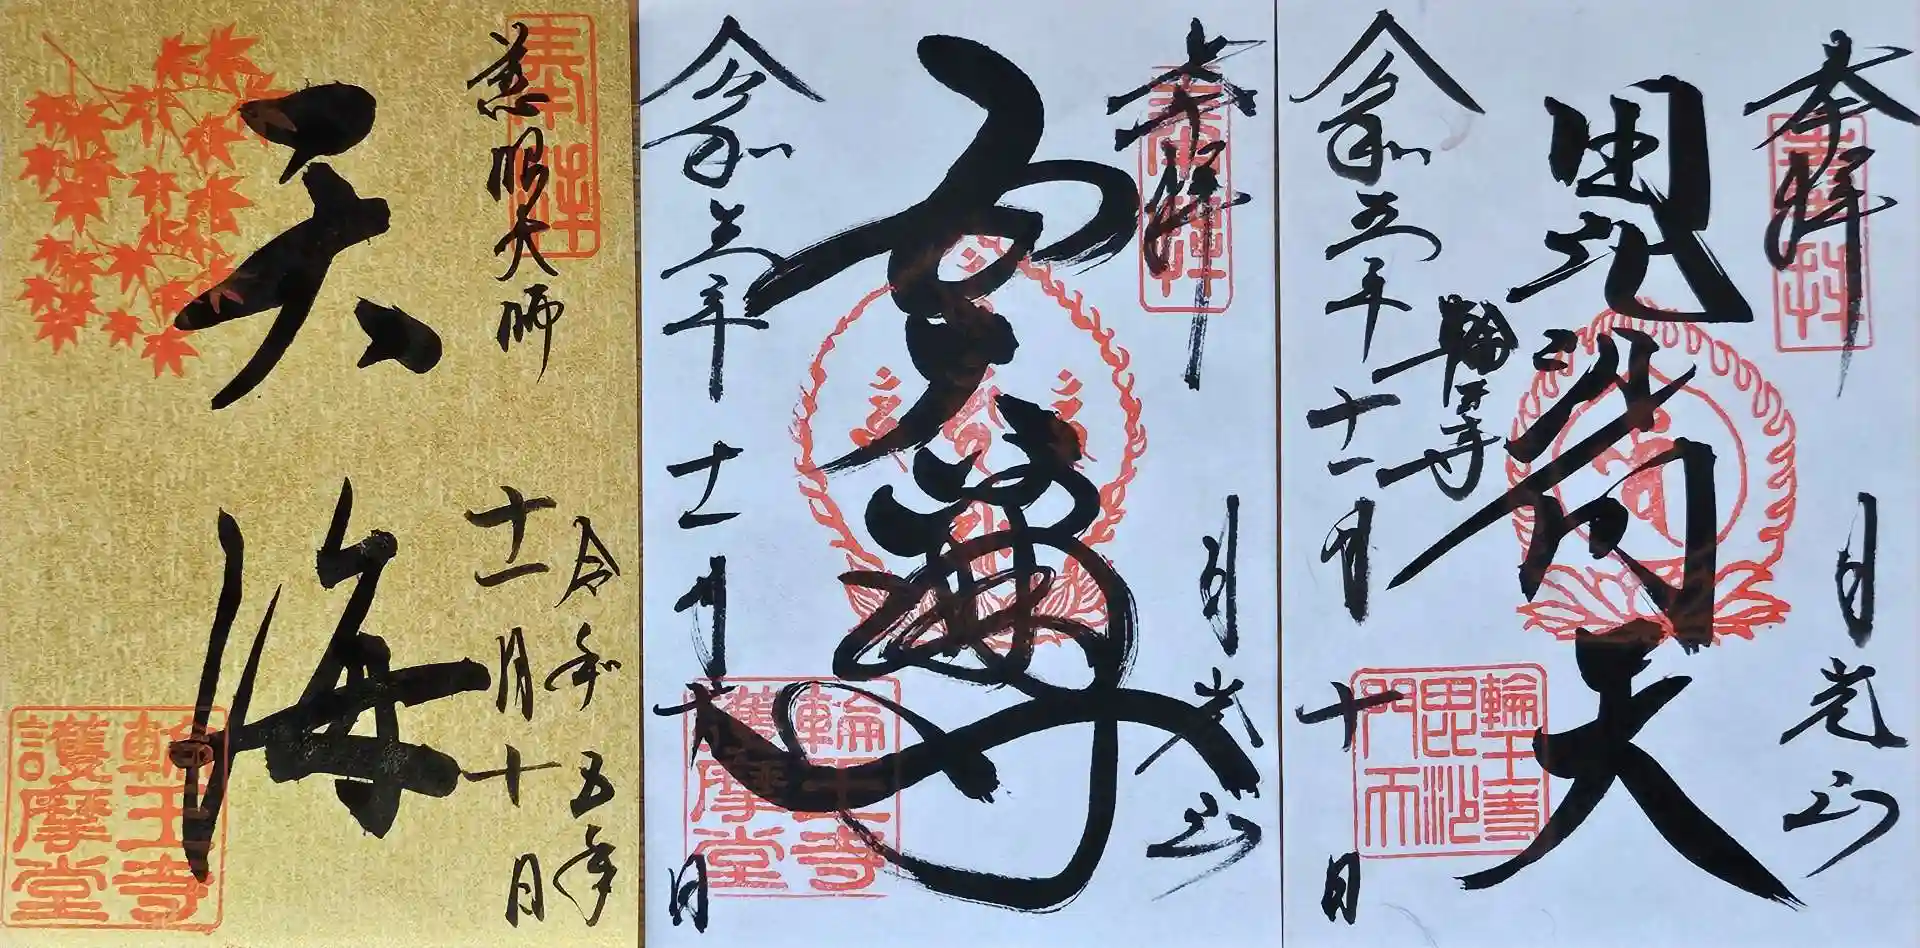 奉拝
慈眼大師
天海
令和五年
十一月十日
輪王寺
護摩堂
奉拝
奉拝
日光山
五大尊
令和五年十一月十日
輪王寺
護摩堂
奉拝
奉拝
日光山
毘沙門天
輪王寺
令和五年十一月十日
輪王寺
毘沙
門天